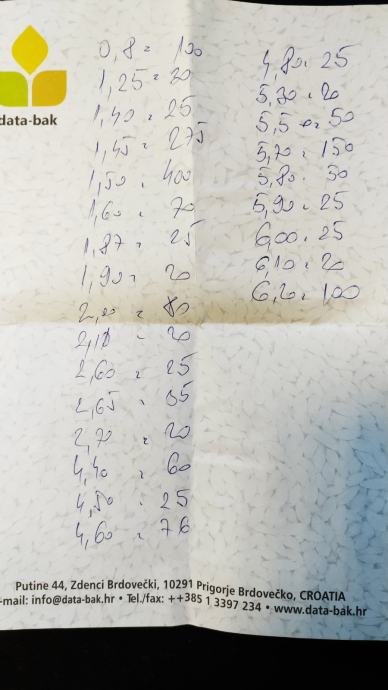 data-bak
0,8 = 100
1,25 = 30
1,40 = 25
1,45 = 275
1,50 = 400
1,60 = 70
1,87 = 25
1,90 = 20
2,00 = 80
= 20
2,60 = 25
2,65 =
2,70 = 20
4,40 = 60
4,50 = 25
4,60 = 76
4,80 = 25
5,30 = 20
5,5 = 50
5,70 = 150
5,80 =
5,90 = 25
6,00 = 25
6,10 = 20
6,20 = 100
Putine 44, Zdenci Brdovečki, 10291 Prigorje Brdovečko, CROATIA
-mail: info@data-bak.hr • Tel./fax: ++385 1 3397 234 • www.data-bak.hr